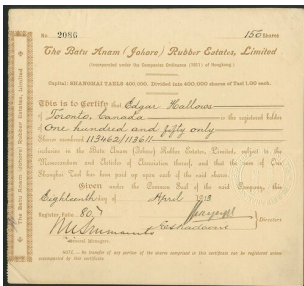 No. 2086 150 Shares
The Batu Anam (Johore) Rubber Estates, Limited
(Incorporated under the Companies Ordinance (1911) of Hongkong)
Capital: SHANGHAI TAELS 400,000. Divided into 400,000 shares of Tael 1.00 each.
This is to Certify that Edgar Hallows
of Toronto, Canada is the registered holder
of One hundred and fifty only
Shares numbered 113462/113611
inclusive in the Batu Anam (Johore) Rubber Estates, Limited, subject to the
Memorandum and Articles of Association thereof, and that the sum of One
Shanghai Tael has been paid up upon each of the said shares.
Given under the Common Seal of the said Company, this
Eighteenth day of April 1913
Register Folio 807
Director
General Managers.
NOTE.—No transfer of any portion of the shares comprised in this certificate can be registered unless
accompanied by this certificate.
The Batu Anam (Johore) Rubber Estates, Limited.